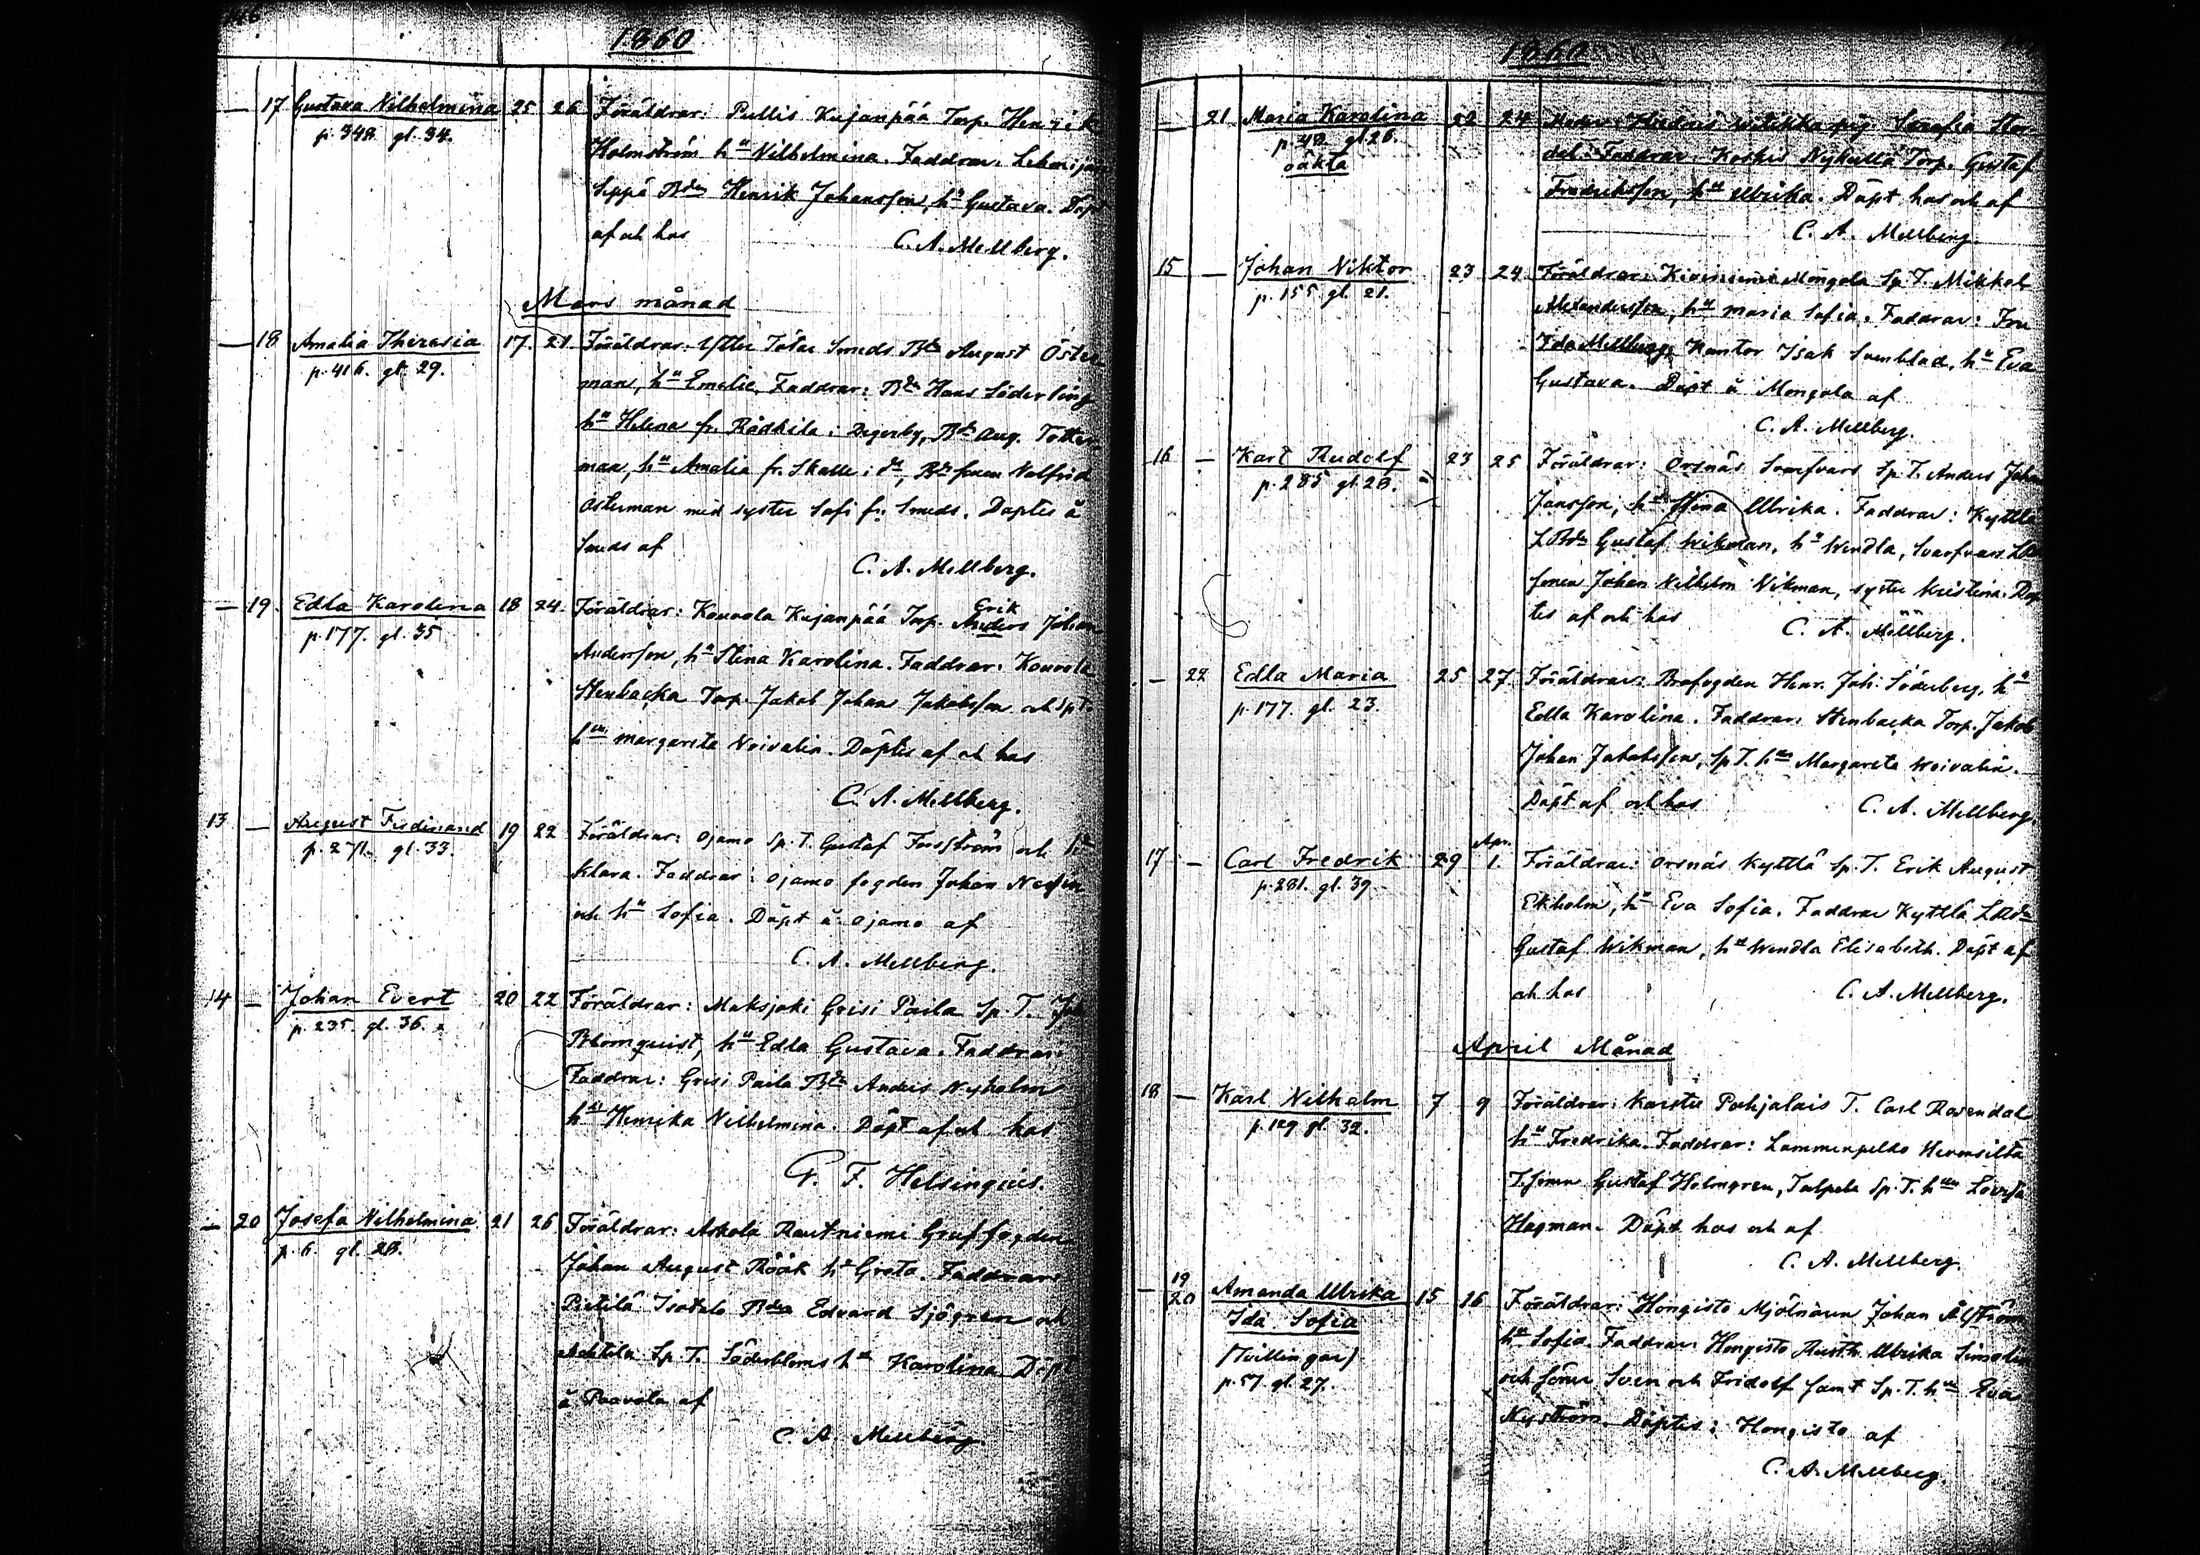 146
1860
— 17 Gustava Wilhelmina 25 26 Föräldrar: Pullis Kujanpää Torp. Henrik
p. 348 gl. 34. Holmström hu Wilhelmina. Faddrar: Lehmijär
Seppä Bden Henrik Johansson, hu Gustava. Döpt
af och hos C. A. Mellberg.
Mars månad
— 18 Amalia Theresia 17. 21 Föräldrar: Ytter Tötar Smeds Bde August Öster
p. 416. gl. 29. man, hu Emelie, Faddrar: Bde Hans Söderling
hu Helena fr. Rådkila i Degerby, Bde Aug. Totter
man, hu Amalia fr. Skalle i do, Bde sonen Walfrid
Österman med syster Sofi fr. Smeds. Döptes å
Smeds af
C. A. Mellberg.
— 19 Edla Karolina 18 24. Föräldrar: Kouvola Kujanpää Torp. Anders Erik Johan
p. 177. gl. 35 Andersson, hu Stina Karolina. Faddrar: Kouvola
Stenbacka Torp. Jakob Johan Jakobsson och Sp.T.
hun Margareta Woivalin. Döptes af och hos
C. A. Mellberg.
13 — August Ferdinand 19 22 Föräldrar: Ojamo Sp. T. Gustaf Forsström och hu
p. 271. gl. 33. Klara. Faddrar: Ojamo fogden Johan
och hu Sofia. Döpt å Ojamo af
C. A. Mellberg.
14 — Johan Evert 20 22 Föräldrar: Maksjoki Grisi Paila Sp. T. Joh
p. 235. gl. 36. Blomquist, hu Edla Gustava. Faddrar:
Faddrar: Grisi Paila Bde Anders Nyholm
hu Henrika Wilhelmina. Döpt af och hos
G. F. Helsingius.
— 20 Josefa Wilhelmina 21 26 Föräldrar: Askola Rautniemi Gruffogden
p. 6. gl. 28. Johan August Röök hu Greta. Faddrar
Pietilä Isotalo Bden Edvard Sjögren och
Anttila Sp. T. Söderbloms hu Karolina Döpt
å Paavola af
C. A. Mellberg
1860
— 21 Maria Karolina 22 24 Moder: Hiidois Witikka pig. Serafia
p. 48 gl. 26. Faddrar: Koskis Nykulla Torp. Gustaf
oäkta Fredriksson, hu Ulrika. Döpt hos och af
C. A. Mellberg.
15 — Johan Wiktor 23 24 Föräldrar: Kiviniemi Mongola Sp. T. Mikkel
p. 155 gl. 21. Alexandersson, hu Maria Sofia. Faddrar: Fru
Ida Mellberg, Kantor Isak Svenblad, hu Eva
Gustava. Döpt å Mongola af
C. A. Mellberg.
16 — Karl Rudolf 23 25 Föräldrar: Orsnäs Svarfvars Sp. T. Anders Johan
p. 285 gl. 28. Jansson, hu Stina Ulrika. Faddrar: Kyttlä
LBde Gustaf Wikman, hu Wendla, Svarfvars LBde
sonen Johan Wilhelm Wikman, syster Kristina. Döp
tes af och hos C. A. Mellberg.
— 22 Edla Maria 25 27. Föräldrar: Brofogden Henr. Joh. Söderberg, hu
p. 177. gl. 23. Edla Karolina. Faddrar: Stenbacka Torp. Jakob
Johan Jakobsson, Sp T. hun Margareta Woivalin.
Döpt af och hos C. A. Mellberg
17 — Carl Fredrik 29 Apr. 1. Föräldrar: Orsnäs Kyttlä Sp. T. Erik August
p. 281. gl. 39 Ekholm, hu Eva Sofia. Faddrar Kyttlä LBde
Gustaf Wikman, hu Wendla Elisabeth. Döpt af
och hos C. A. Mellberg.
April Månad
18 — Karl Wilhelm 7 9 Föräldrar: Karstu Pohjalais T. Carl Rosendal
p. 129 gl. 32. hu Fredrika. Faddrar: Lammenpelto Hermsilta
T.sonen Gustaf Holmgren, Talpela Sp. T. hun Lovisa
Hagman. Döpt hos och af
C. A. Mellberg.
— 19 20 Amanda Ulrika 15 16 Föräldrar: Hongisto Mjölnaren Johan Ahlström
Ida Sofia hu Sofia. Faddrar: Hongisto Rusth. Ulrika Simolin
/Tvillingar/ och söner Sven och Fridolf samt Sp. T. hun Eva
p. 57. gl. 27. Nyström. Döptes i Hongisto af
C. A. Mellberg.